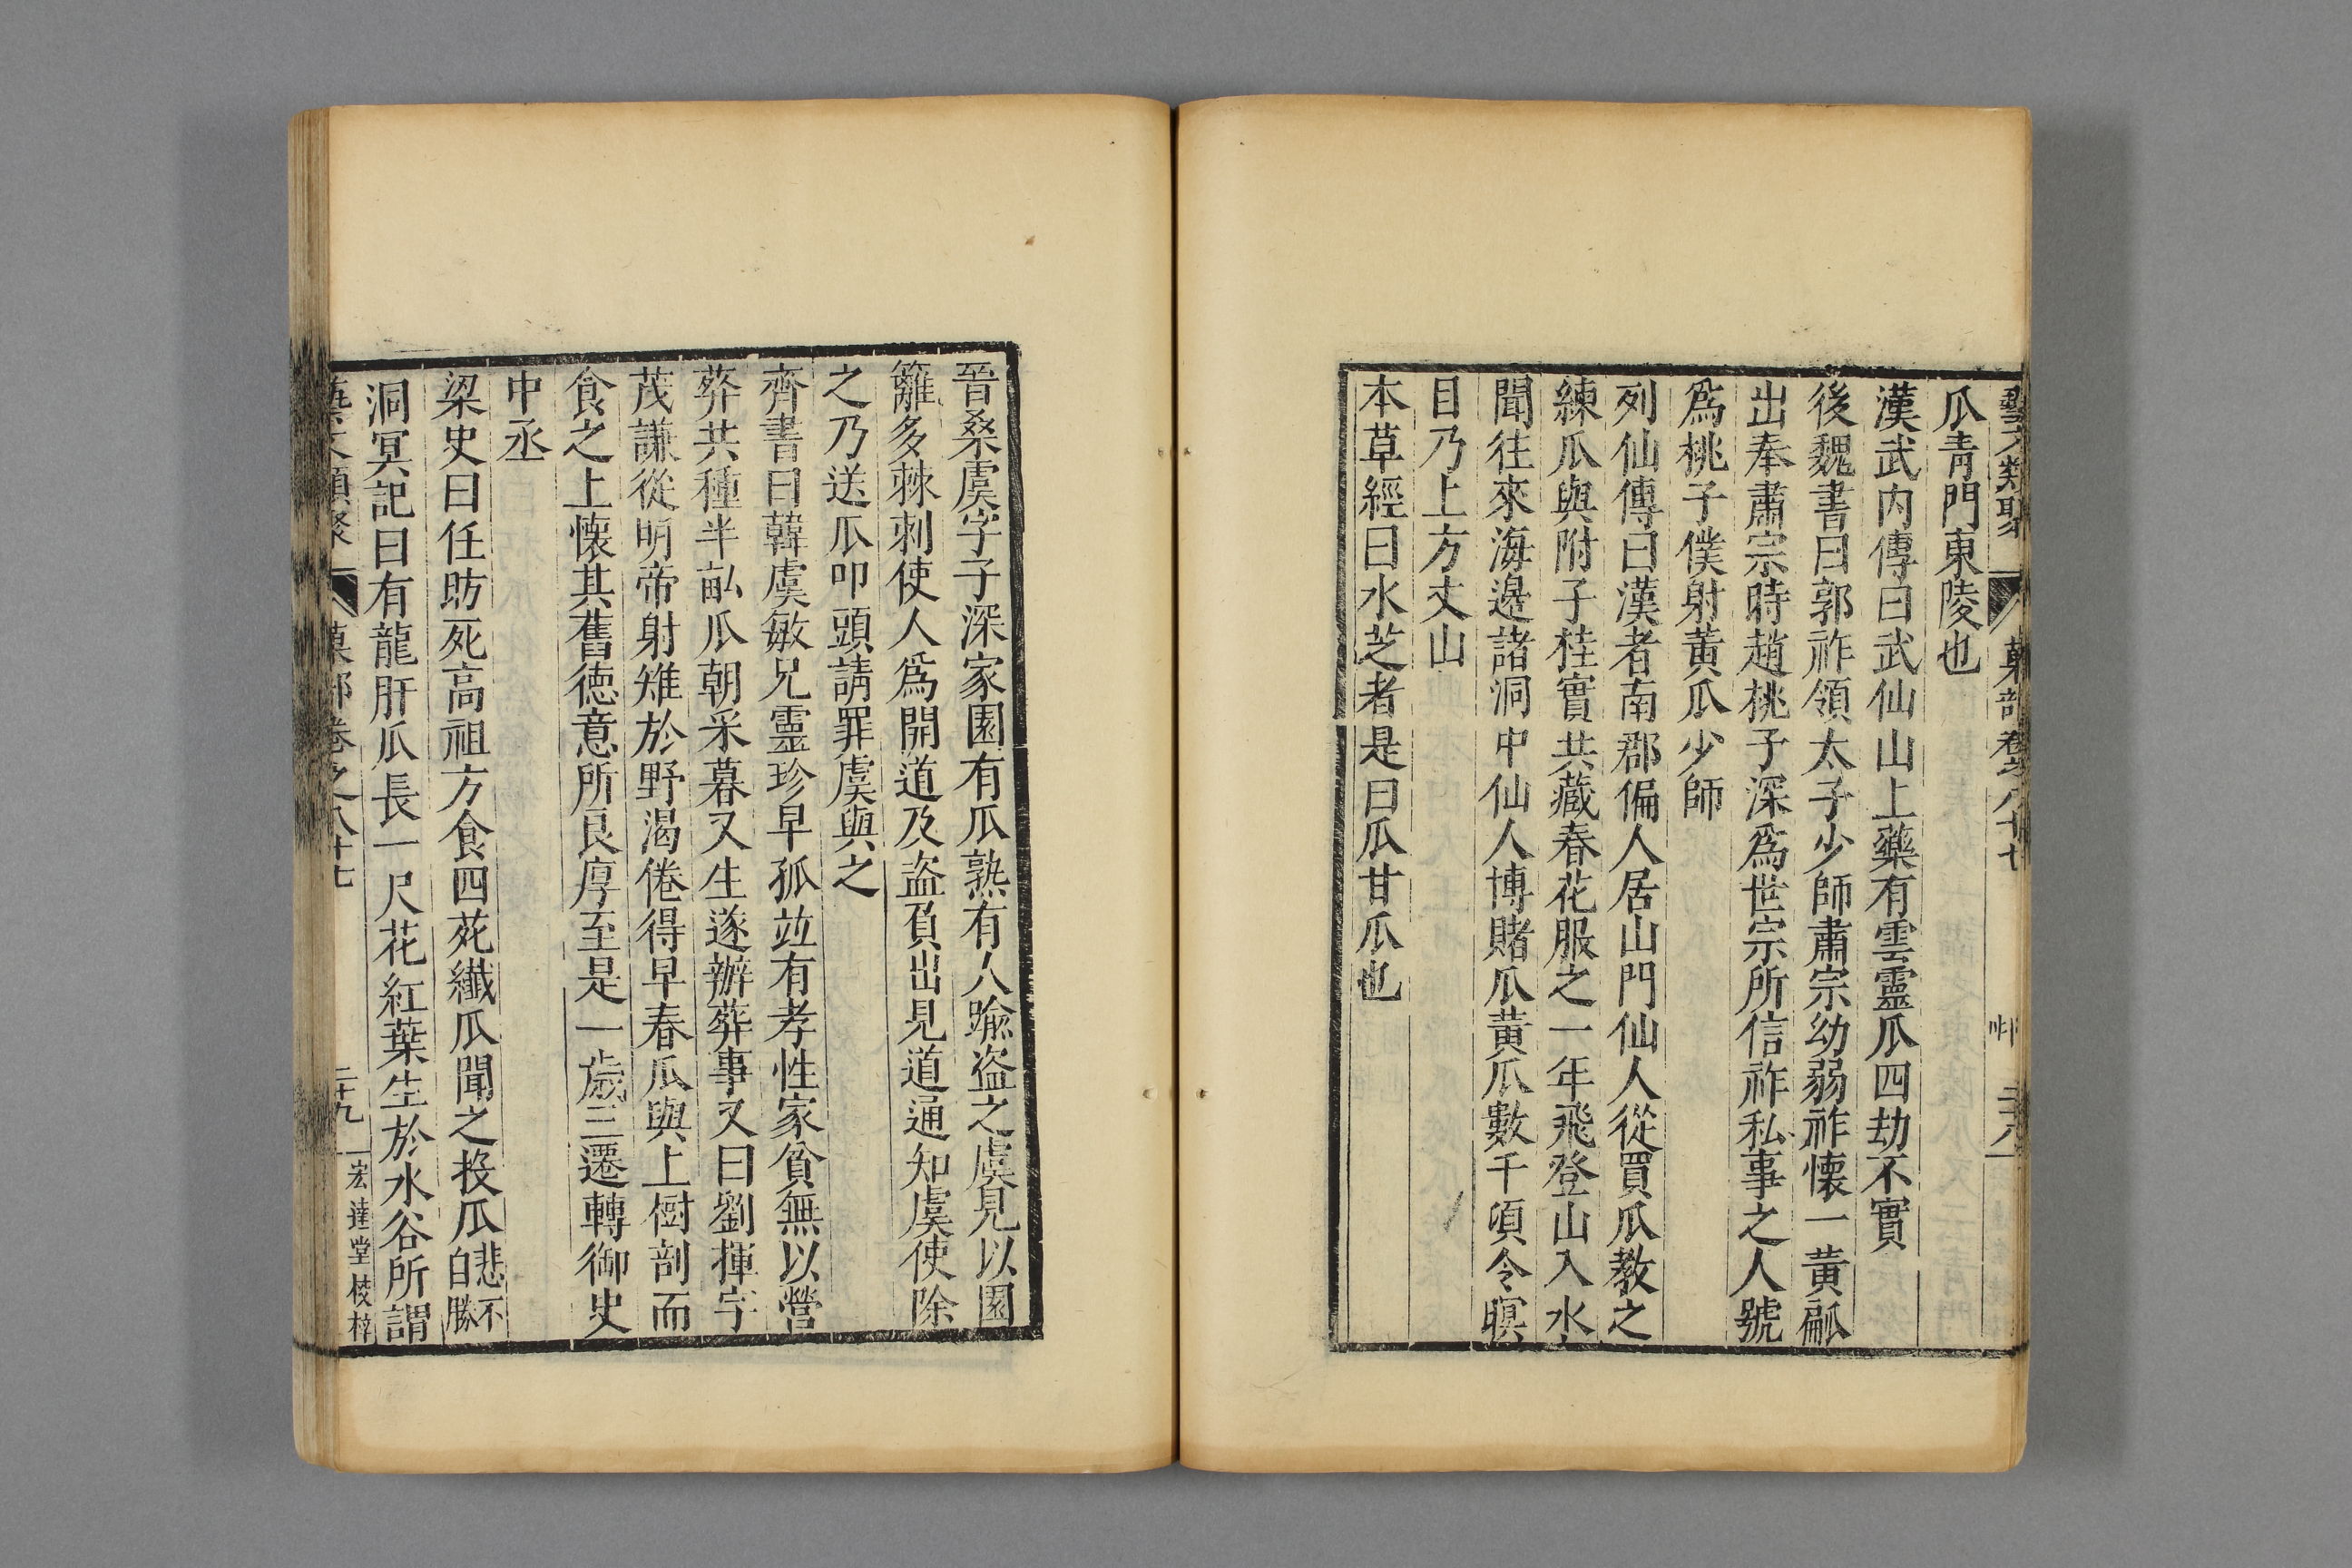 藝文類聚 菓部卷之八十七
瓜青門東陵也
漢武內傳曰武仙山上藥有雲靈瓜四劫不實
後魏書曰郭祚領太子少師肅宗幼弱祚懷一黃㼐
出奉肅宗時趙桃子深爲世宗所信祚私事之人號
爲桃子僕射黃瓜少師
列仙傳曰漢者南郡偏人居山門仙人從買瓜教之
練瓜與附子桂實共藏春花服之一年飛登山入水
聞往來海邊諸洞中仙人博賭瓜黃瓜數千頃令瞑
目乃上方丈山
本草經曰水芝者是曰瓜甘瓜也
晉桑虞字子深家園有瓜熟有人踰盜之虞見以園
籬多棘刺使人爲開道及盜負出見道通知虞使除
之乃送瓜叩頭請罪虞與之
齊書曰韓虞敏兄靈珍早孤竝有孝性家貧無以營
葬共種半畝瓜朝采暮又生遂辦葬事又曰劉揮字
茂謙從明帝射雉於野渴倦得早春瓜與上𣗳剖而
食之上懷其舊德意所良厚至是一歲三遷轉御史
中丞
梁史曰任昉死高祖方食四苑纖瓜聞之投瓜悲不
白勝
洞冥記曰有龍肝瓜長一尺花紅葉生於水谷所謂
藝文類聚 菓部卷之八十七 二十九 宏達堂校梓